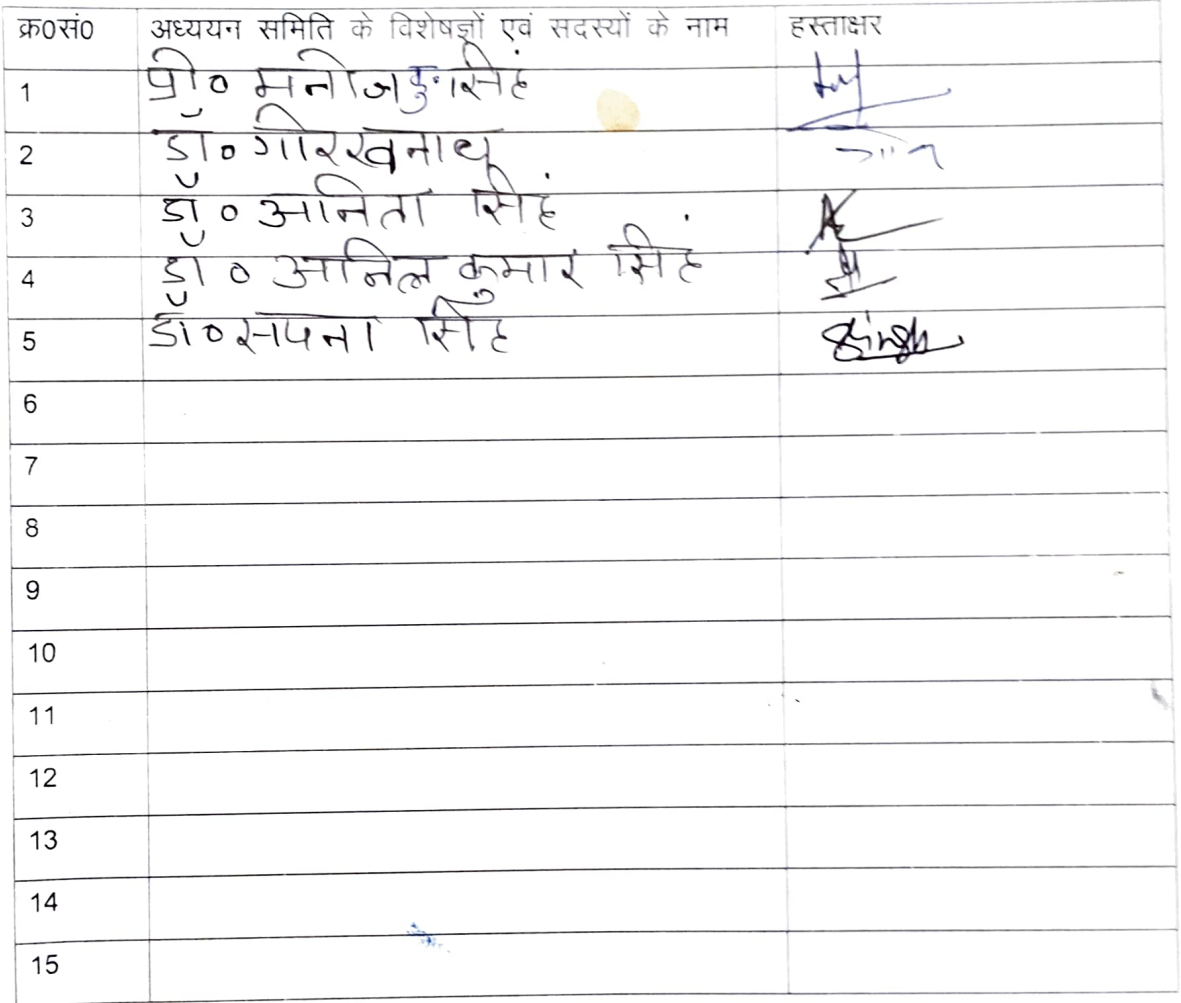 क्र0सं0 अध्ययन समिति के विशेषज्ञों एवं सदस्यों के नाम हस्ताक्षर
1 प्रो० मनोज कु० सिंह
2 डॉ० गोरखनाथ
3 डॉ० अनिता सिंह
4 डॉ० अनिल कुमार सिंह
5 डॉ० सपना सिंह Singh
6
7
8
9
10
11
12
13
14
15